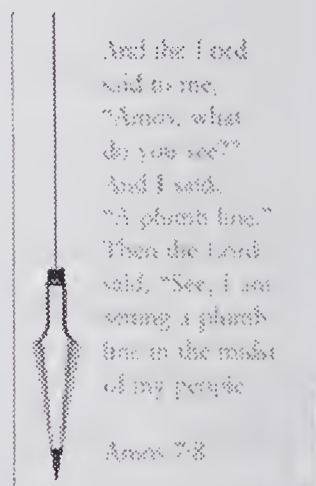 And the Lord
said to me,
"Amos, what
do you see?"
And I said,
"A plumb line."
Then the Lord
said, "See, I am
setting a plumb
line in the midst
of my people
Amos 7:8